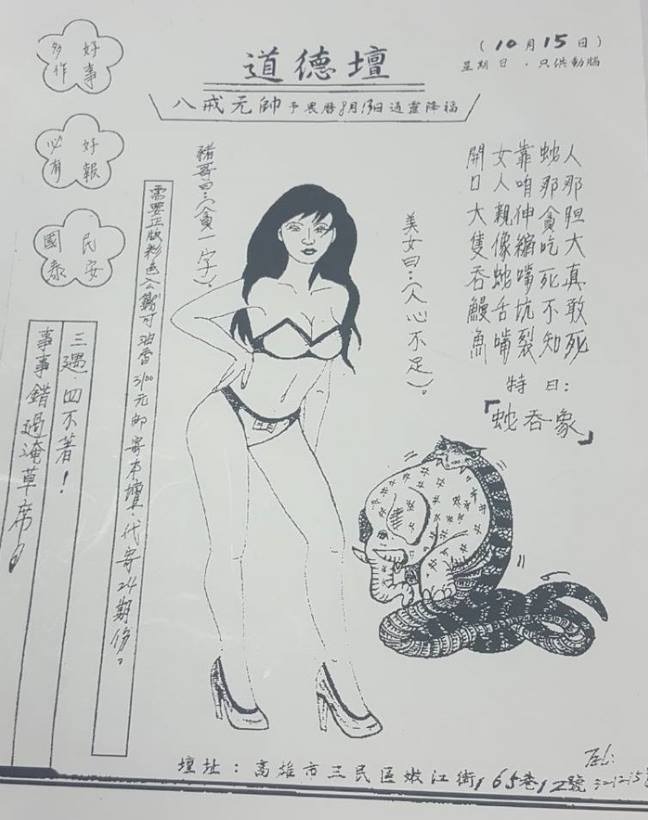 (10月15日)
星期日．只供動腦
道德壇
八戒元帥予農曆8月13日通靈降福
好事
多作
好報
必有
民安
國泰
人那胆大真敢死
蛇那貪吃死不知
靠咱伸縮嘴坑裂
女人親像蛇舌嘴
開口大隻吞鰻魚
特曰：
「蛇吞象」
美女曰：(人心不足)。
豬哥曰：(貪一字)。
需要正版彩色公藝可油當3100元郵寄本壇代寄24期份。
三遇．四不著！
事事錯過淹草席！
壇址：高雄市三民區嫩江街165巷12號
TEL: